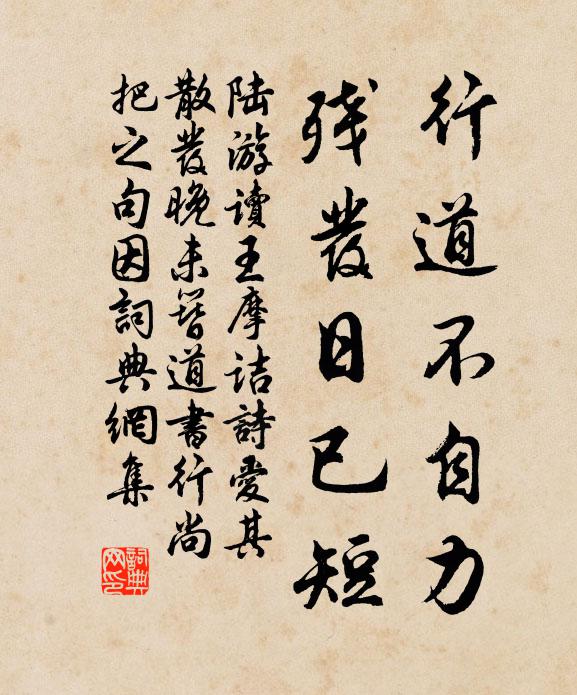 行道不自力
残發日已短
陆游讀王摩诘詩愛其
散發晚未簪道書行尚
把之句因詞典網集
詞典网印